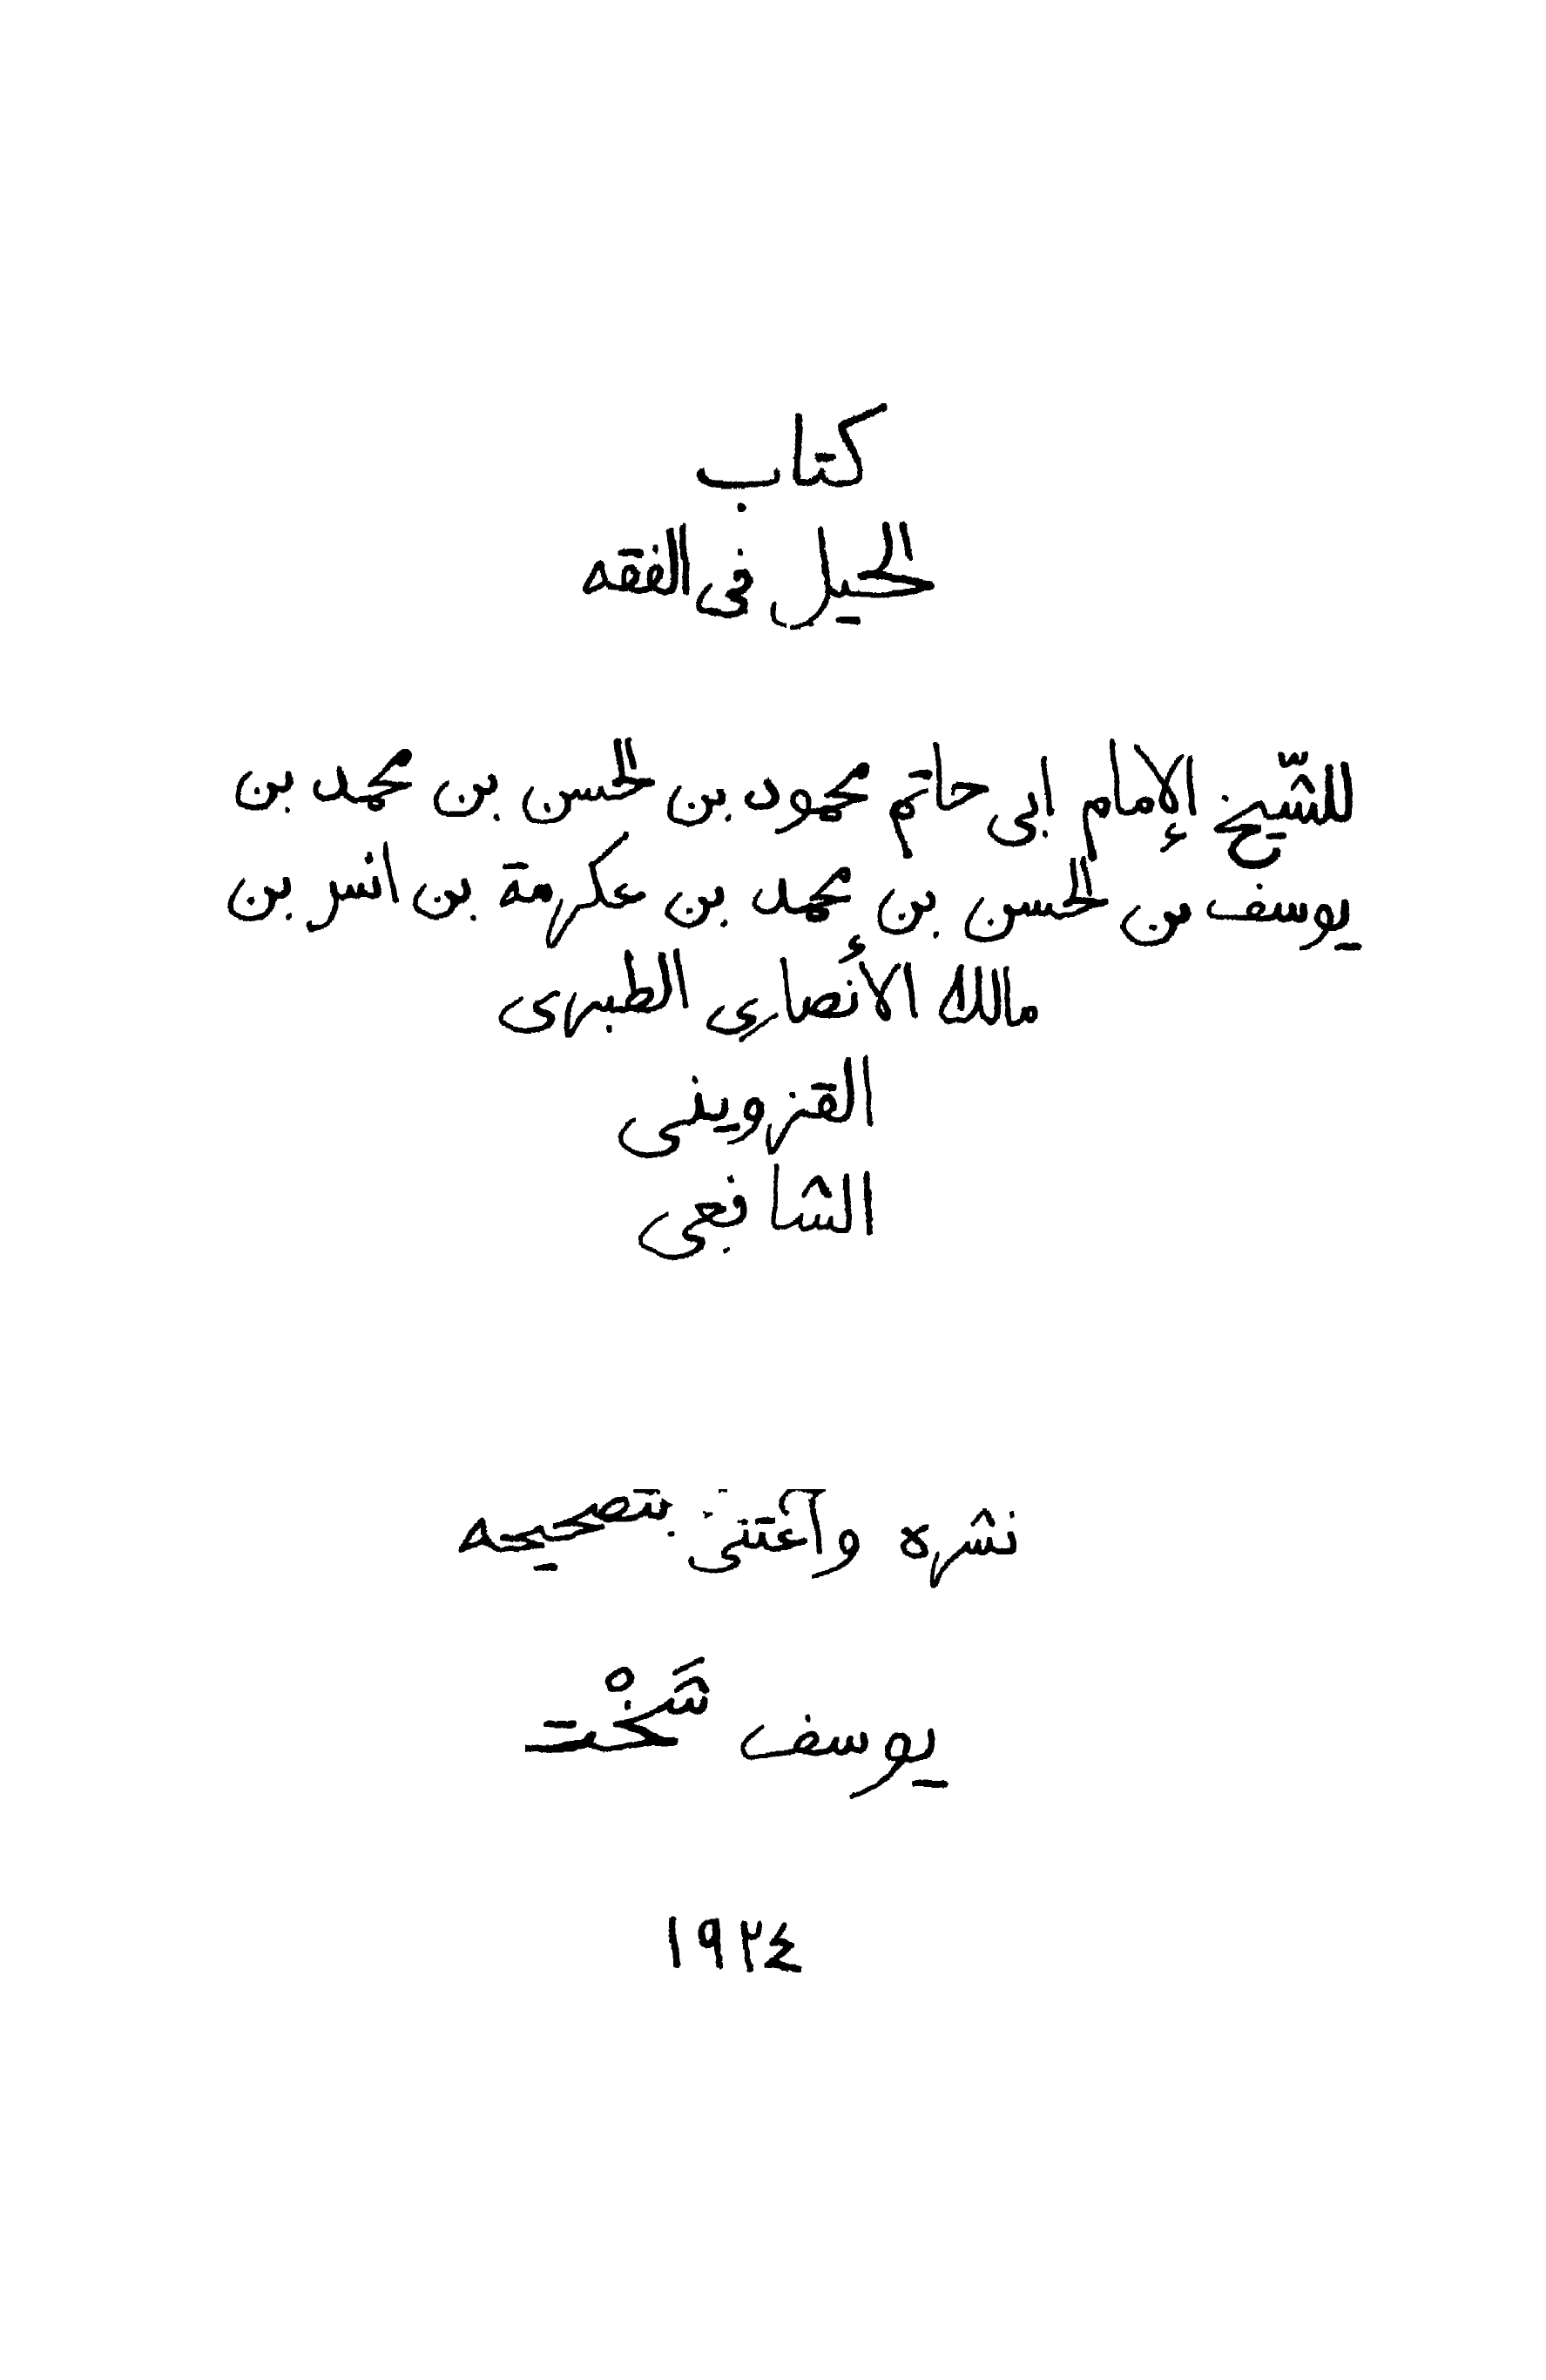 كتاب
الحيل فى الفقه
للشّيخ الإمام ابى حاتم محمود بن الحسن بن محمد بن
يوسف بن الحسن بن محمد بن عكرمة بن انس بن
مالك الأنصارى الطبرى
القزوينى
الشافعى
نشره وآعتنى بتصحيحه
يوسف شَخْت
١٩٢٤